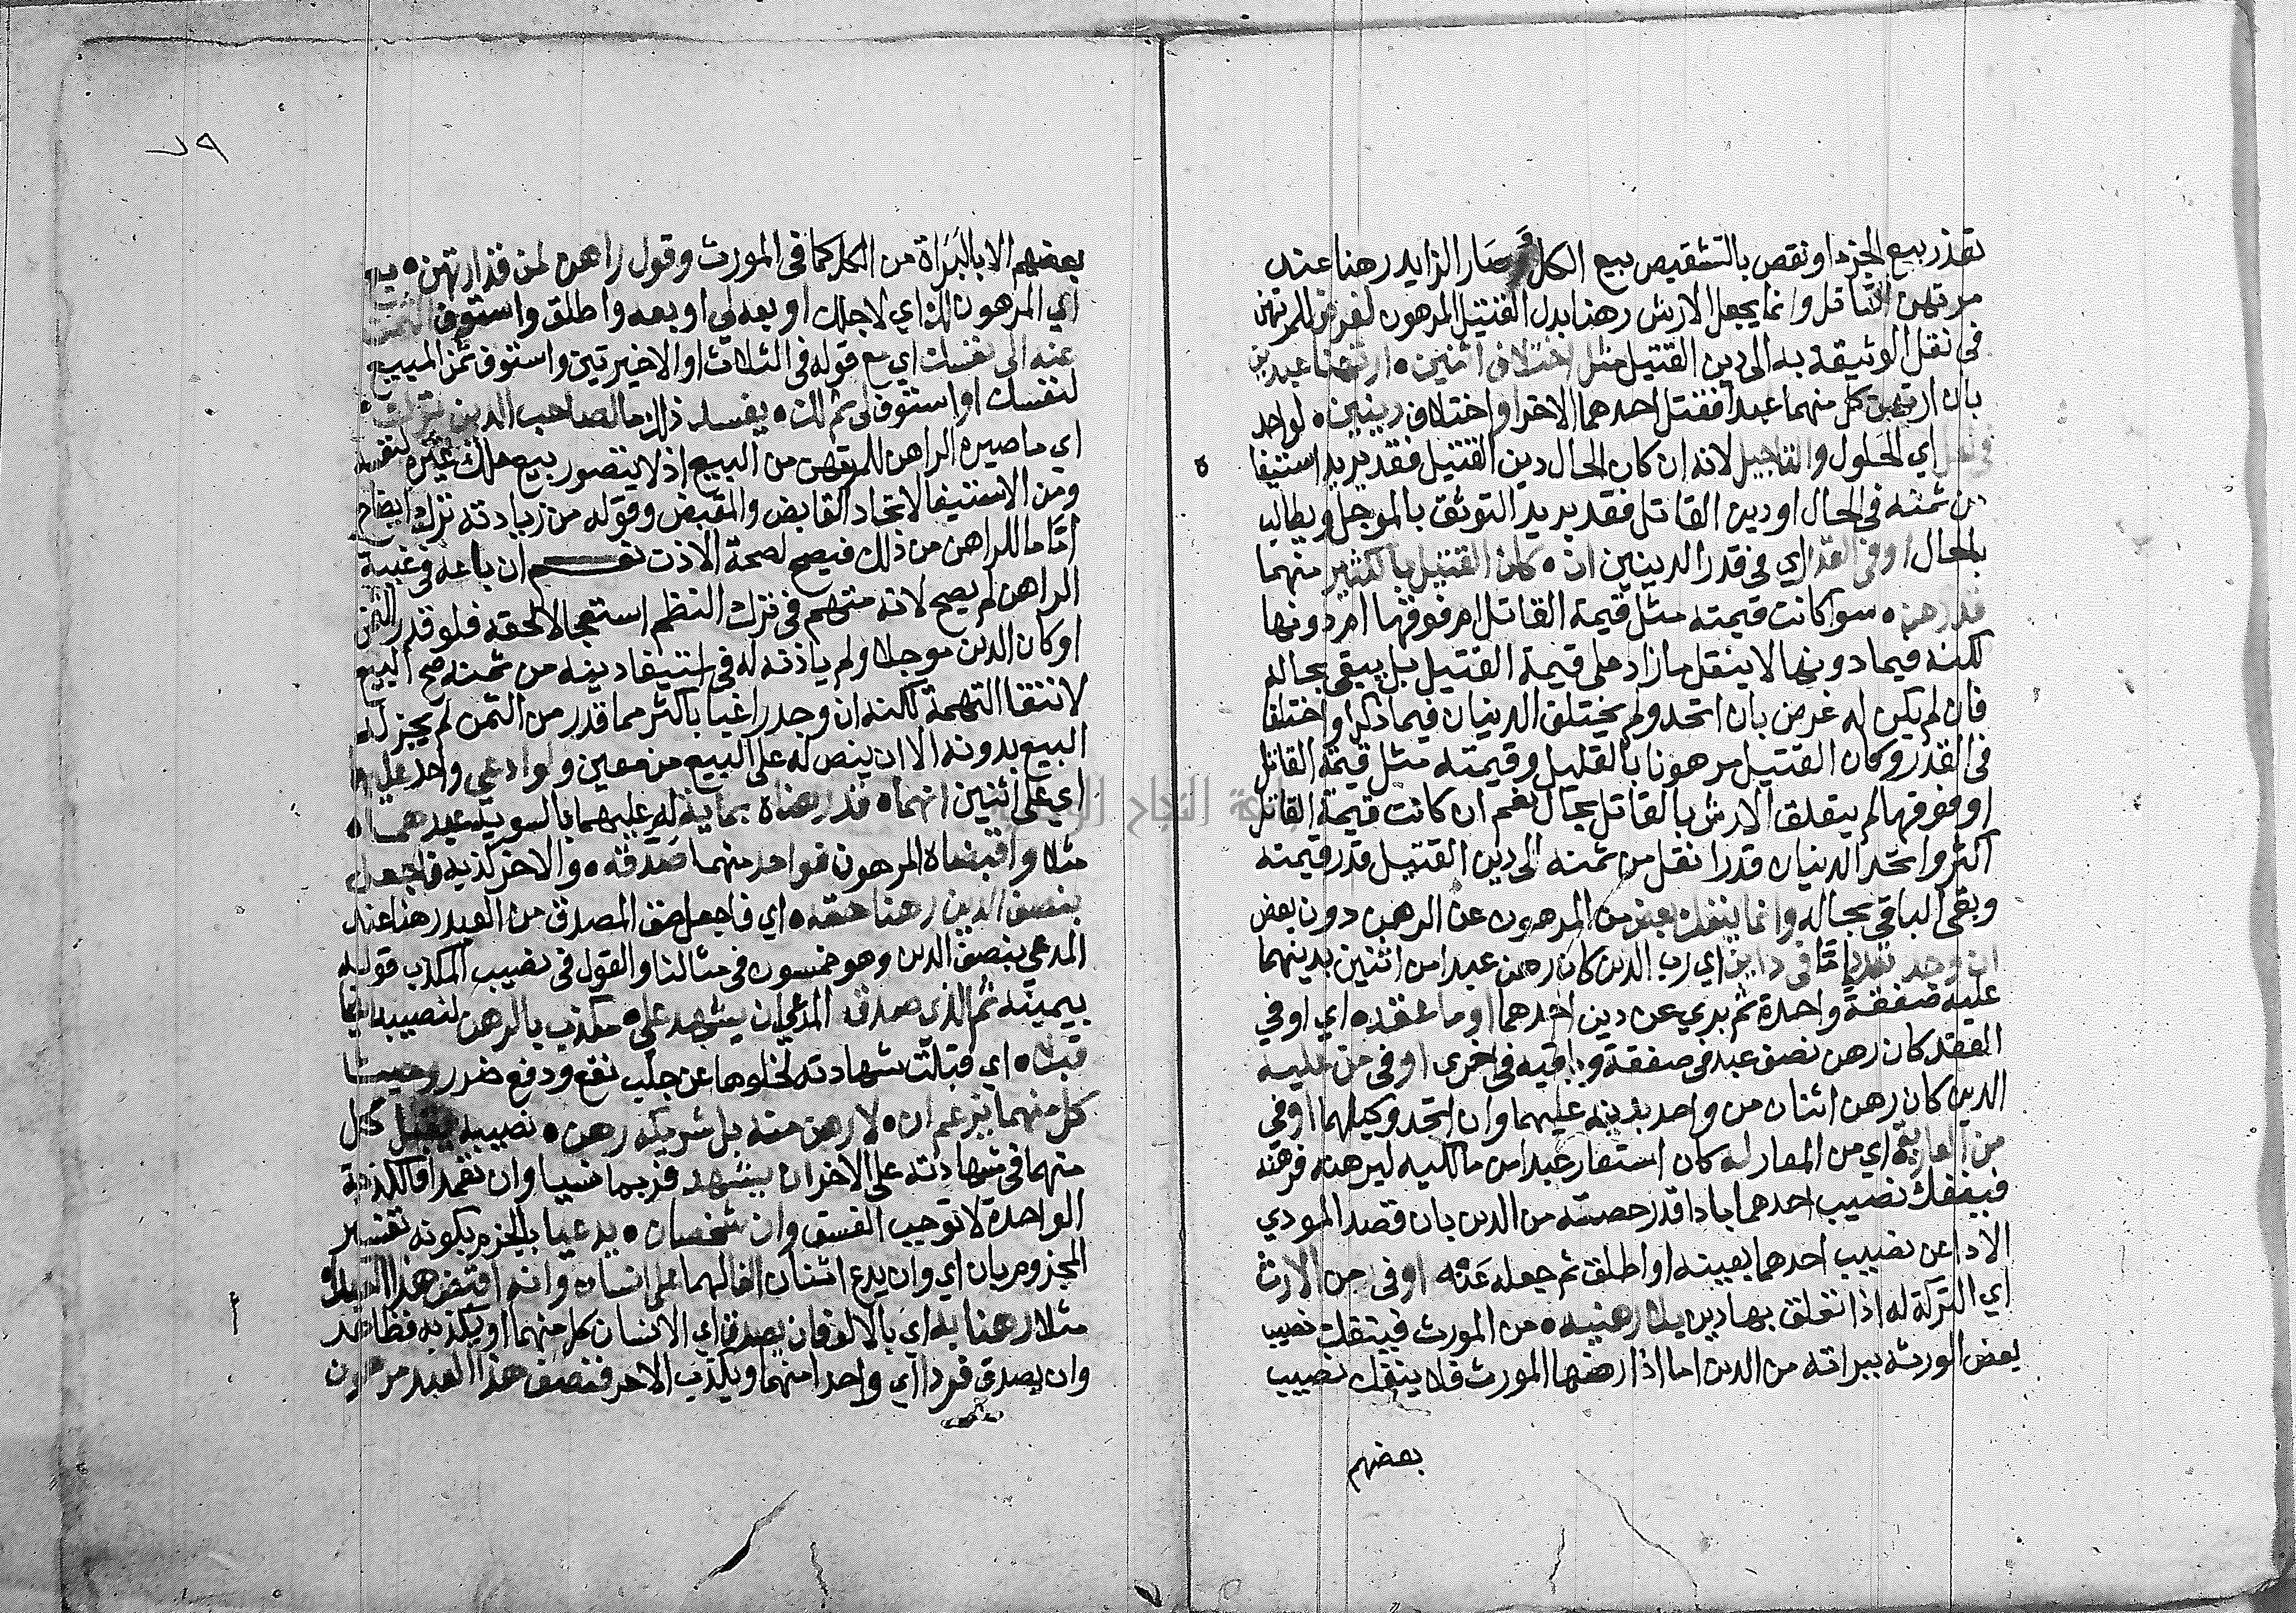 تعذر بيع الجزء او نقص بالتشقيص بيع الكل وصار الزايد رهنا عند
مرتهن القاتل وانما يجعل الارش رهنا بدل القتيل المرهون لغرض للمرتهن
في نقل الوثيقة به الى دين القتيل مثل اختلاف اثنين ارتهنا عبدين
بان ارتهن كل منهما عبدا فقتل احدهما الاخر او اختلاف دينين لواحد
في اي الحلول والتاجيل لانه ان كان الحال دين القتيل فقد يريد استيفا
من ثمنه في الحال او دين القاتل فقد يريد التوثق بالموجل ويطالب
بالحال او في القدر اي في قدر الدينين ان كان القتيل بالكثير منهما
قد رهن سوا كانت قيمته مثل قيمة القاتل ام فوقها ام دونها
لكنه فيما دونها لا ينقل ما زاد على قيمة القتيل بل يبقى بحاله
فان لم يكن له غرض بان اتحد ولم يختلف الدينان فيما ذكر او اختلفا
في القدر وكان القتيل مرهونا بالقليل وقيمته مثل قيمة القاتل
او فوقها لم يتعلق الارش بالقاتل بحال نعم ان كانت قيمة القاتل
اكثر واتحد الدينان قدرا نقل من ثمنه الى دين القتيل قدر قيمته
وبقى الباقي بحاله وانما ينفك بعض من المرهون عن الرهن دون بعض
ان وجد تعدد اما في داين اي رب الدين كان رهن عبدا من اثنين بدينهما
عليه صفقة واحدة ثم بري عن دين احدهما او ما عقده اي او في
العقد كان رهن نصف عبد في صفقة وباقيه في اخرى او في من عليه
الدين كان رهن اثنان من واحد بدينه عليهما وان اتحد وكيلهما او في
من العارية اي من المعار له كان استعار عبدا من مالكيه ليرهنه فرهنه
فينفك نصيب احدهما باداء قدر حصته من الدين بان قصد المودي
الادا عن نصيب احدهما بعينه او اطلق ثم جعله عنه او في من الارث
اي التركة له اذا تعلق بها دين بلا رهنيه من المورث فينفك نصيب
بعض الورثه ببراته من الدين اما اذا رهنها المورث فلا ينفك نصيب
بعضهم
٧٩
بعضهم الا بالبراة من الكل كما في المورث وقول راهن لمن قد ارتهن بع
اي المرهون لك اي لاجلك او بعه لي او بعه واطلق واستوف الثمن
عنه الى نفسك اي مع قوله في الثلاث او الاخيرتين واستوف ثمن المبيع
لنفسك او استوف لي ثم لك يفسد ذلك ما لصاحب الدين ترك
اي ما صيره الراهن للمرتهن من البيع اذ لا يتصور بيع ملك غيره لنفسه
ومن الاستيفا لاتحاد القابض والمقبض وقوله من زيادته ترك ايضاح
اما ما للراهن من ذلك فيصح لصحة الاذن نعم ان باعه في غيبة
الراهن لم يصح لانه متهم في ترك النظر استعجالا لحقه فلو قدر الثمن
او كان الدين موجلا ولم ياذن له في استيفا دينه من ثمنه صح البيع
لانتفا التهمة لكنه ان وجد راغبا باكثر مما قدر من الثمن لم يجز له
البيع بدونه الا ان ينص له على البيع من معين ولو ادعى واحد على
اي على اثنين انهما قد رهناه بماية له عليهما بالسوية عبدهما
مثلا واقبضاه المرهون فواحد منهما صدقه والاخر كذبه فاجعل
بنصف الدين رهنا حقه اي فاجعل حق المصدق من العبد رهنا عند
المدعي بنصف الدين وهو خمسون في مثالنا والقول في نصيب المكذب قوله
بيمينه ثم الذي صدق المدعي ان يشهد على مكذب بالرهن لنصيبه
قبلا اي قبلت شهادته لخلوها عن جلب نفع ودفع ضرر وحيث
كل منهما يزعم ان لا رهن منه بل شريكه رهن نصيبه يقبل كل
منهما في شهادته على الاخر ان يشهد فربما نسيا وان تعمدا فالكذبة
الواحدة لا توجب الفسق وان شخصان يدعيا بالجزم بكونه تفسير
المجزوم بان اي وان يدع اثنان الفا لهما على انسان وانه اقبض هذا العبد
مثلا رهنا به اي بالالف فان يصدق اي الانسان كل منهما او يكذبه فظاهر
وان يصدق فردا اي واحدا منهما ويكذب الاخر فنصف هذا العبد مرهون